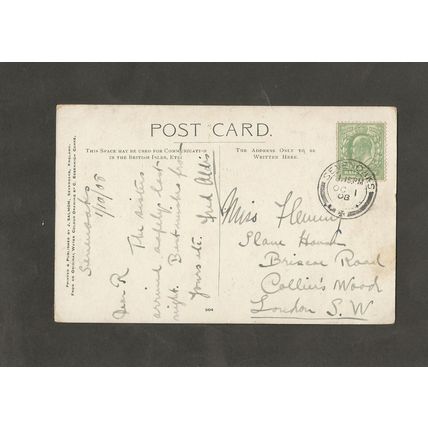 POST CARD.
THIS SPACE MAY BE USED FOR COMMUNICATION
IN THE BRITISH ISLES, ETC.
THE ADDRESS ONLY TO BE
WRITTEN HERE.
PRINTED & PUBLISHED BY J. SALMON, SEVENOAKS, ENGLAND.
FROM AN ORIGINAL WATER COLOUR DRAWING BY C. ESSENHIGH CORKE.
Sevenoaks
1/10/08
Dear R The
arrived safely last
night. Best wishes from
Yours etc.
Fred Ellis
SEVENOAKS
OC 1
08
Miss Fleming
House
Briscoe Road
Collier's Wood
London S. W